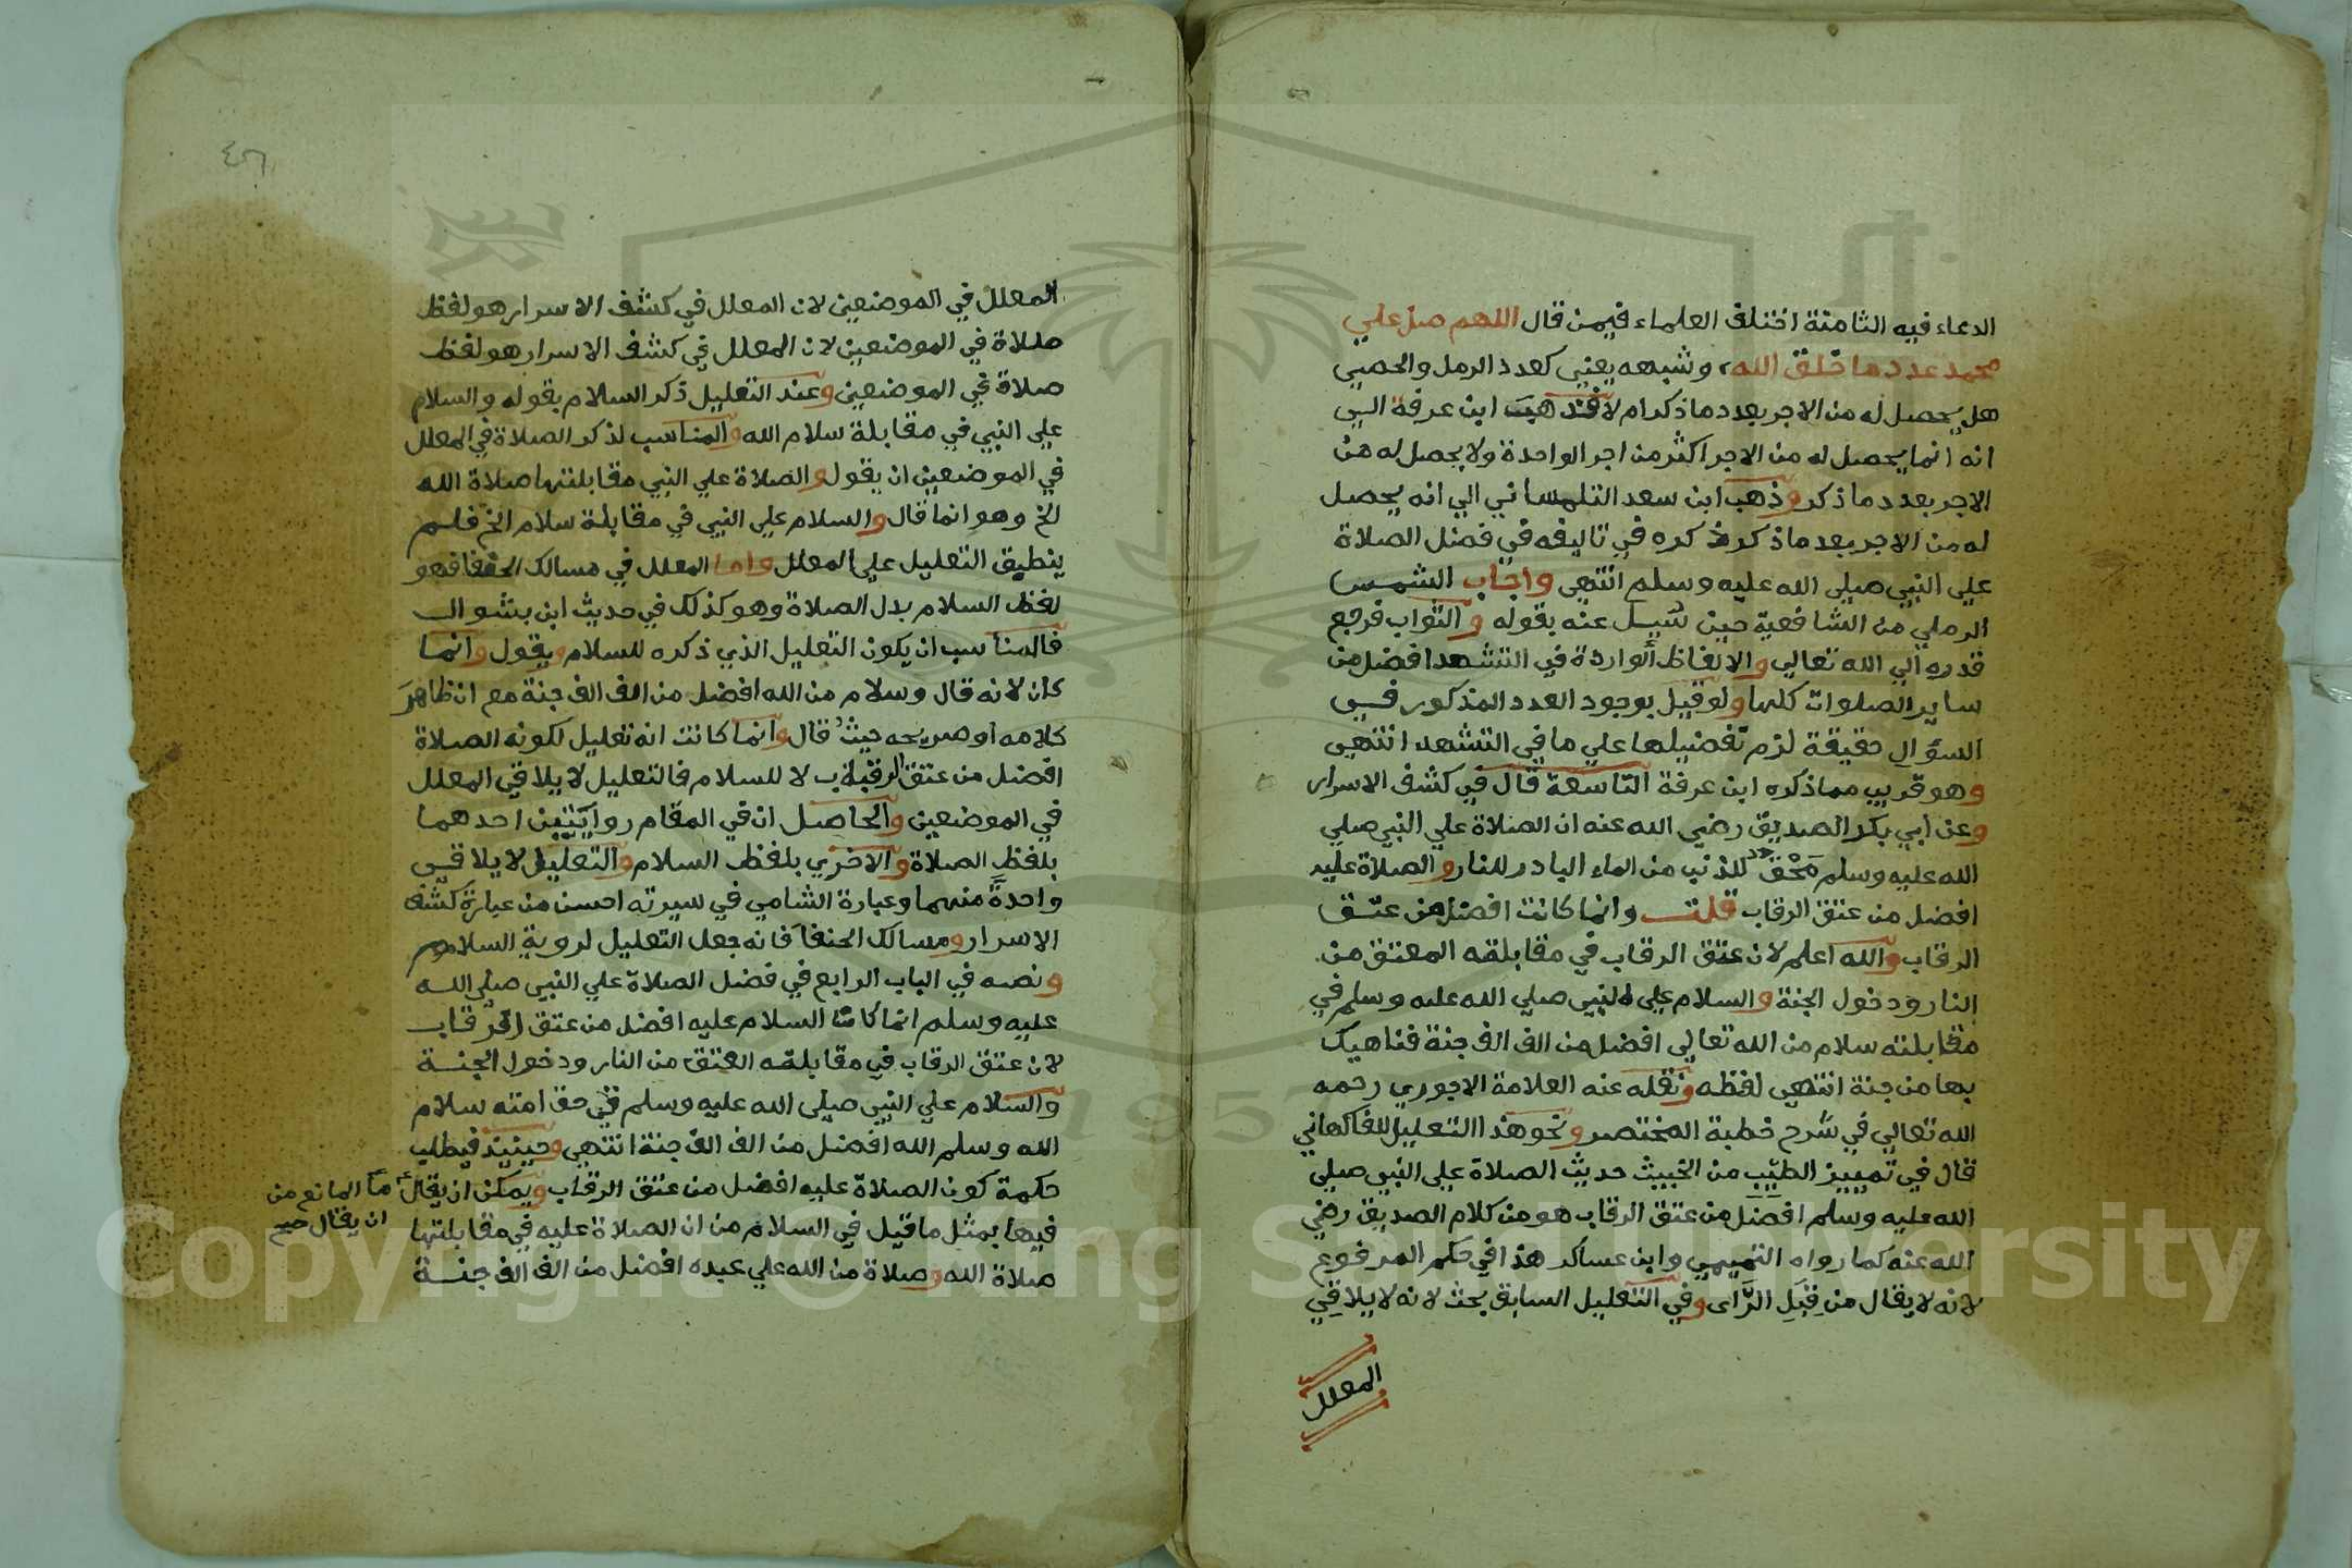 الدعاء فيه الثامنة اختلف العلماء فيمن قال اللهم صل علي
محمد عدد ما خلق الله وشبهه يعني كعدد الرمل والحصي
هل يحصل له من الاجر بعدد ما ذكر ام لا فذهب ابن عرفة الي
انه انما يحصل له من الاجر اكثر من اجر الواحدة ولا يحصل له من
الاجر بعدد ما ذكر وذهب ابن سعد التلمساني الي انه يحصل
له من الاجر بعد ما ذكر ذكره في تاليفه في فضل الصلاة
علي النبي صلي الله عليه وسلم انتهي واجاب الشمس
الرملي من الشافعية حين سيل عنه بقوله والثواب فرجع
قدره الي الله تعالي والالفاظ الواردة في التشهد افضل من
ساير الصلوات كلها ولو قيل بوجود العدد المذكور في
السؤال حقيقة لزم تفضيلها علي ما في التشهد انتهي
وهو قريب مما ذكره ابن عرفة التاسعة قال في كشف الاسرار
وعن ابي بكر الصديق رضي الله عنه ان الصلاة علي النبي صلي
الله عليه وسلم محق للذنب من الماء البادر للنار والصلاة عليه
افضل من عتق الرقاب قلت وانما كانت افضل من عتق
الرقاب والله اعلم لان عتق الرقاب في مقابلته المعتق من
النار ودخول الجنة والسلام علي النبي صلي الله عليه وسلم في
مقابلته سلام من الله تعالي افضل من الف الف جنة فناهيك
بها من جنة انتهي لفظه ونقله عنه العلامة الاجوري رحمه
الله تعالي في شرح خطبة المختصر ونحو هذا التعليل للفاكهاني
قال في تمييز الطيب من الخبيث حديث الصلاة علي النبي صلي
الله عليه وسلم افضل من عتق الرقاب هو من كلام الصديق رضي
الله عنه كما رواه التميمي وابن عساكر هذا في حكم المرفوع
لانه لا يقال من قبل الراي وفي التعليل السابق بحث لانه لا يلاقي
المعلل
المعلل في الموضعين لان المعلل في كشف الاسرار هو لفظ
صلاة في الموضعين لان المعلل في كشف الاسرار هو لفظ
صلاة في الموضعين وعند التعليل ذكر السلام بقوله والسلام
علي النبي في مقابلة سلام الله والمناسب لذكر الصلاة في المعلل
في الموضعين ان يقول والصلاة علي النبي مقابلتها صلاة الله
الخ وهو انما قال والسلام علي النبي في مقابلة سلام الخ فلم
ينطبق التعليل علي المعلل واما المعلل في مسالك الحنفا فهو
لفظ السلام بدل الصلاة وهو كذلك في حديث ابن بشوال
فالمناسب ان يكون التعليل الذي ذكره للسلام ويقول وانما
كان لانه قال وسلام من الله افضل من الف الف جنة مع ان ظاهر
كلامه او صريحه حيث قال وانما كانت انه تعليل لكونه الصلاة
افضل من عتق الرقاب لا للسلام فالتعليل لا يلاقي المعلل
في الموضعين والحاصل ان في المقام روايتين احدهما
بلفظ الصلاة والاخري بلفظ السلام والتعليل لا يلاقي
واحدة منهما وعبارة الشامي في سيرته احسن من عبارة كشف
الاسرار ومسالك الحنفا فانه جعل التعليل لروية السلام
ونصه في الباب الرابع في فضل الصلاة علي النبي صلي الله
عليه وسلم انما كانت السلام عليه افضل من عتق الرقاب
لان عتق الرقاب في مقابلته العتق من النار ودخول الجنة
والسلام علي النبي صلي الله عليه وسلم في حق امته سلام
الله وسلم الله افضل من الف الف جنة انتهي وحينيذ فيطلب
حكمة كون الصلاة عليه افضل من عتق الرقاب ويمكن ان يقال ما المانع من
ان يقال صح
فيها بمثل ما قيل في السلام من ان الصلاة عليه في مقابلتها
صلاة الله وصلاة من الله علي عبده افضل من الف الف جنة
Copyright © King Saud University
1957